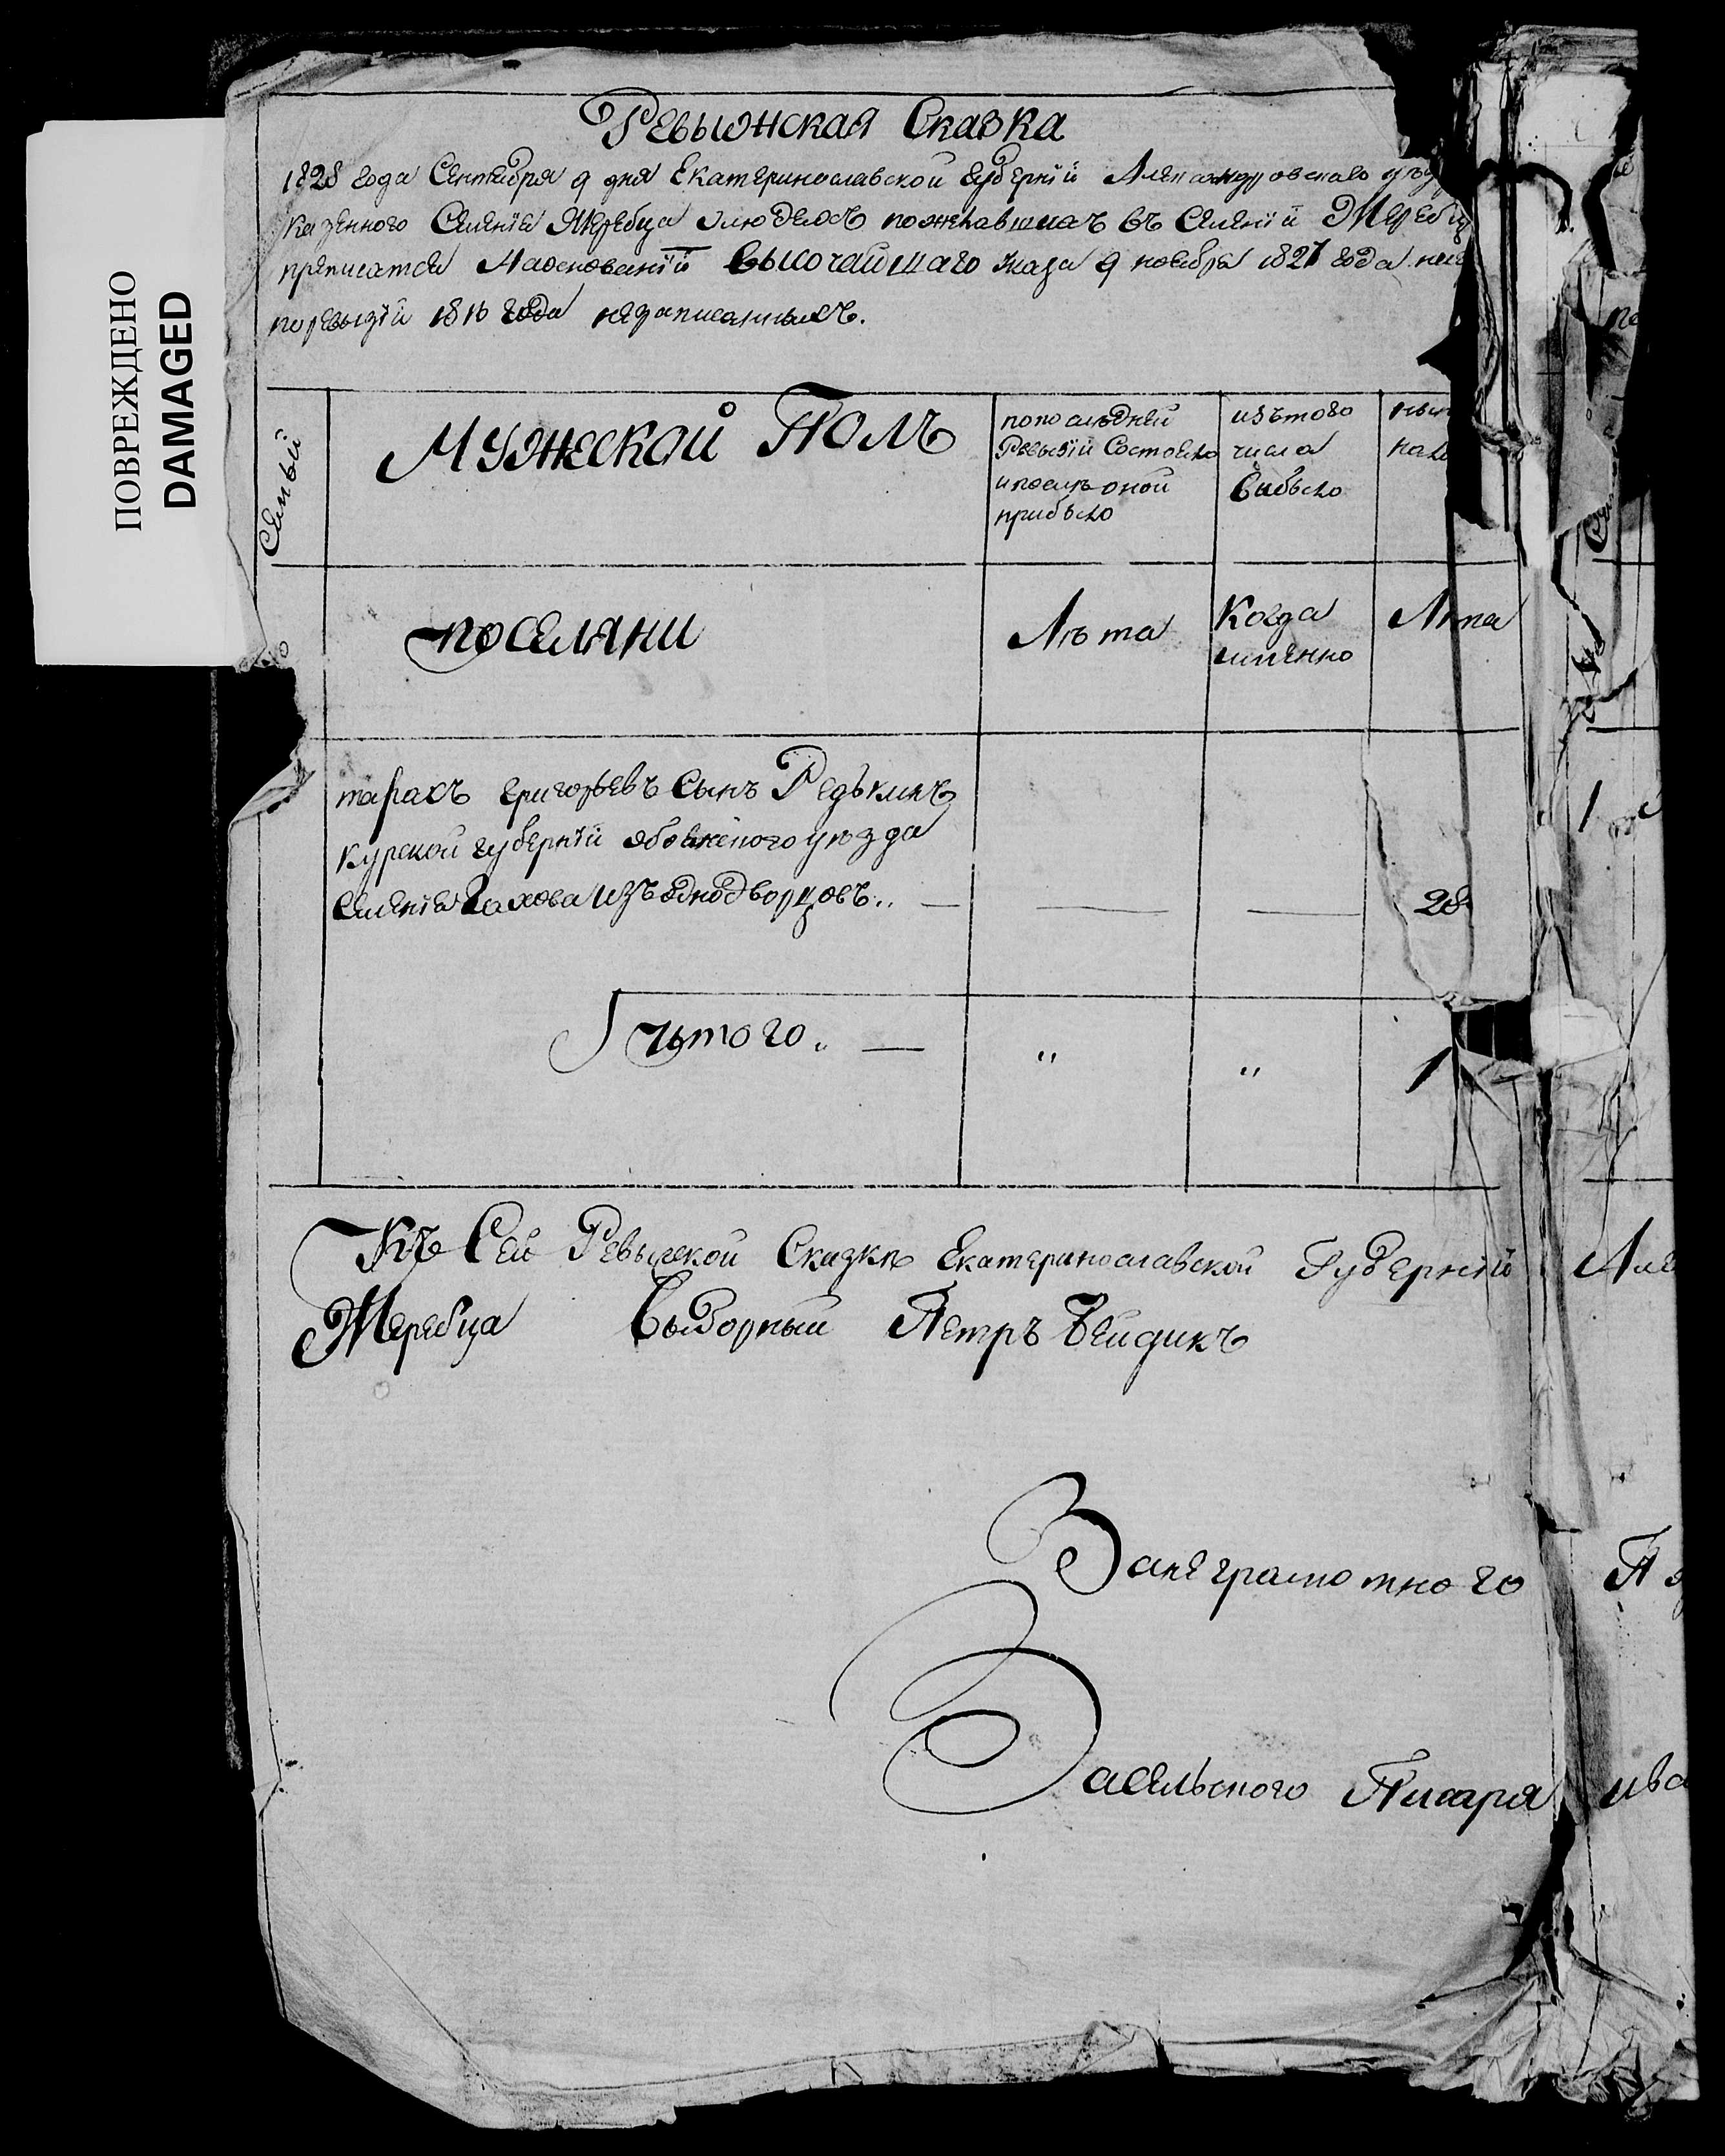 ПОВРЕЖДЕНО
DAMAGED
Ревыжская Сказка
1828 года Сентября 9 дня Екатеринославской губернїи Александровскаго
казенного Селенїя Жеребца олюдехъ пожелавшихъ въ Селенїи Жеребц
преписатся Наоснованїи Высочайшаго Указа 9 ноября 1827 года
поревизїи 1816 года незаписанныхъ.
Семьи
Мужеской Полъ
попоследней
Ревизїи Состояло
ипосле оной
прибыло
изътого
числа
выбыло
поселяни
Лѣта
Когда
имянно
Лѣта
тарасъ григорьевъ Сынъ Редькинъ
курской губернїи обоянского уѣзда
Селенїя изъоднодворцовъ.. — — — 28
Итого. — " " 1
Къ Сей Ревыской Сказкѣ Екатеринославской Губернїи Але
Жеребца Выборный Петръ Бейдикъ
Занеграмотного
Засельского Писаря ива